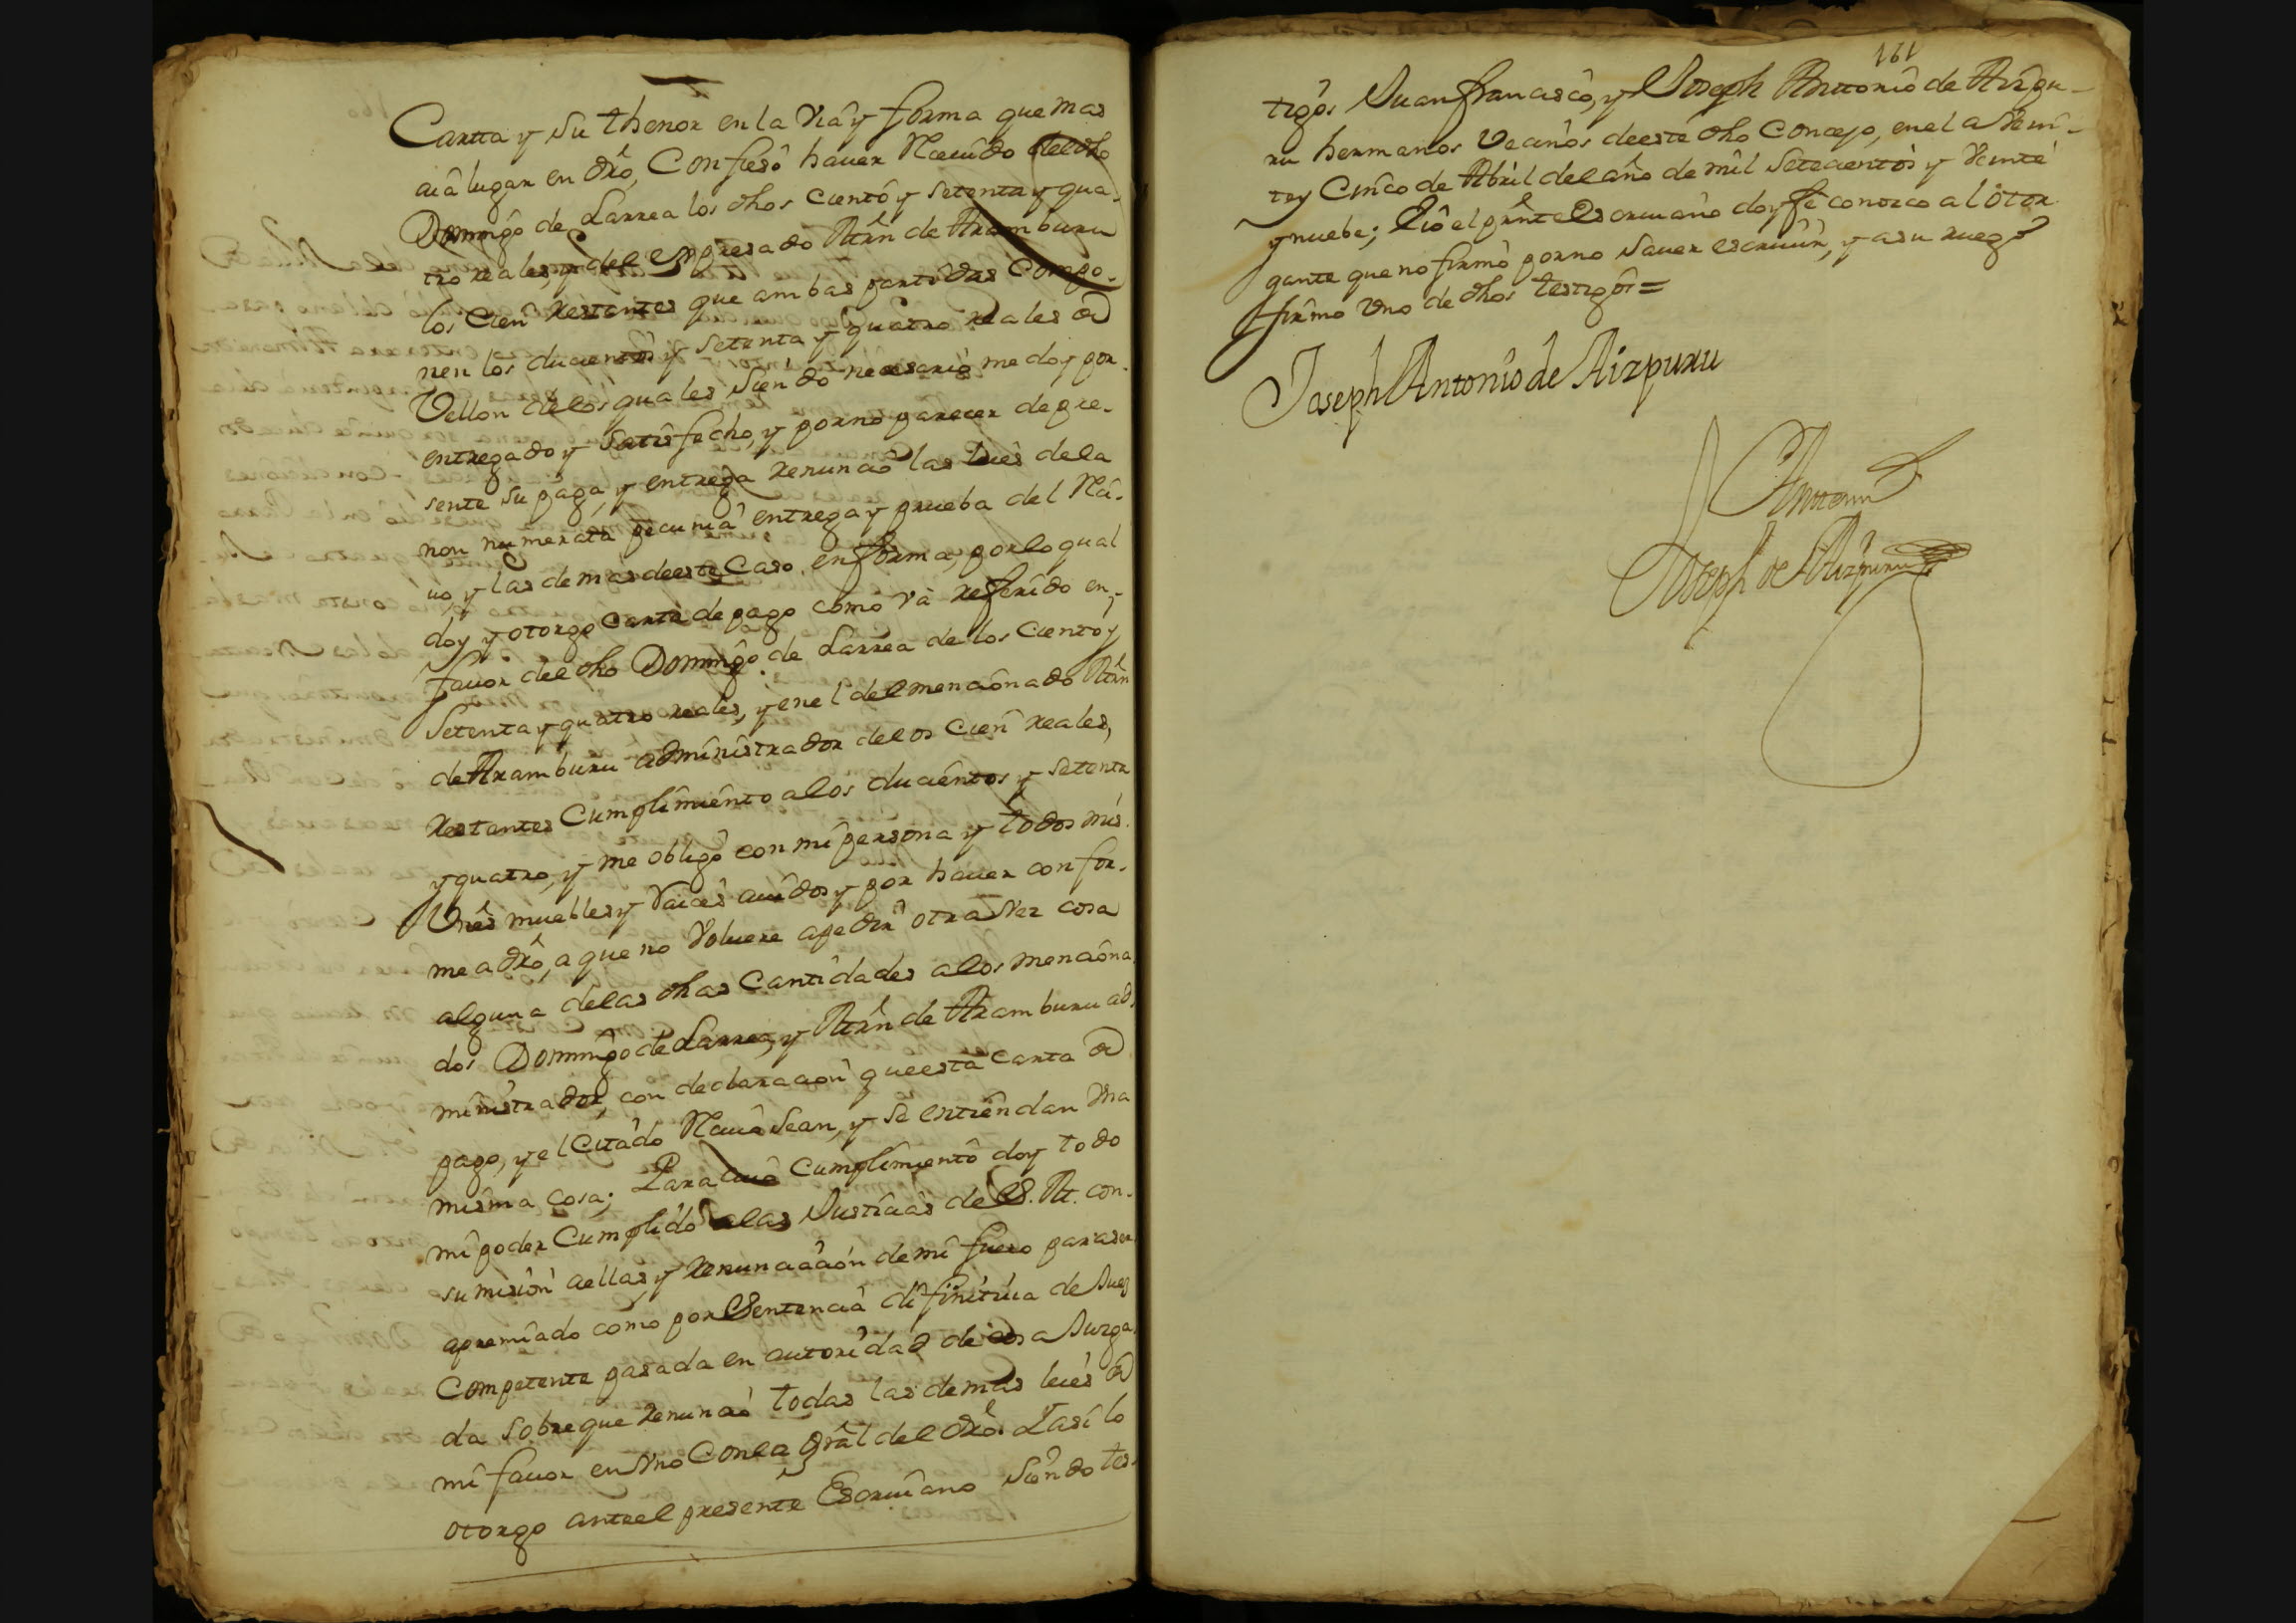 Cartta y su thenor en la via y forma que mas
aia lugar en dro, Confieso hauer Recuido del dho
Domingo de Larrea los dhos ciento y setenta y qua-
tro reales, y del expresado Mrn de Aramburu
los cien restantes que ambas partidas Compo-
nen los ducientos y setenta y quatro reales de
Vellon de los quales siendo necesario me doy por
entregado y satisfecho, y por no parecer de pre-
sente su paga, y entrega renuncio las Leies de la
non numerata pecunia entrega y prueba del Rci-
uo, y las demas de este Caso en forma, por lo qual
doy y otorgo Carta de pago como va referido en
favor del dho Domingo de Larrea de los ciento y
setenta y quatro reales, y en el del mencionado Mrn
de Aramburu administrador de los cien reales,
restantes Cumplimiento a los ducientos y setenta
y quatro, y me obligo con mi persona y todos mis
Vnes muebles y Raices auidos y por hauer confor-
me a dro, a que no Voluere a pedir otra vez cosa
alguna de las dhas Cantidades a los menciona
dos Domingo de Larrea, y Mrn de Aramburu ad-
ministrador, con declaracion que esta carta de
pago, y el Citado Reciuo sean, y se entiendan Vna
misma cosa; Para cuio Cumplimiento doy todo
mi poder Cumplido a las Justicias de S. M. con
sumision a ellas, y renunciacion de mi fuero para ser
apremiado como por Sentencia difinitiua de Juez
Competente pasada en autoridad de cosa Juzga
da sobre que renuncio todas las demas leies de
mi fauor en vno Con la gral del dro. Y asi lo
otorgo antel presente Escriuano siendo tes-
161
tigos Juan francisco, y Joseph Antonio de Aizpu-
ru hermanos Vecinos de este dho Concejo, en el a Vein-
te y Cinco de Abril del año de mil setecientos y Veinte
y nuebe; E io el prnte Escriuano doy fe conozco al otor
gante que no firmo por no sauer escriuir, y a su ruego
firmo vno de dhos testigos =
Joseph Antonio de Aizpuru
Joseph de Aizpuru